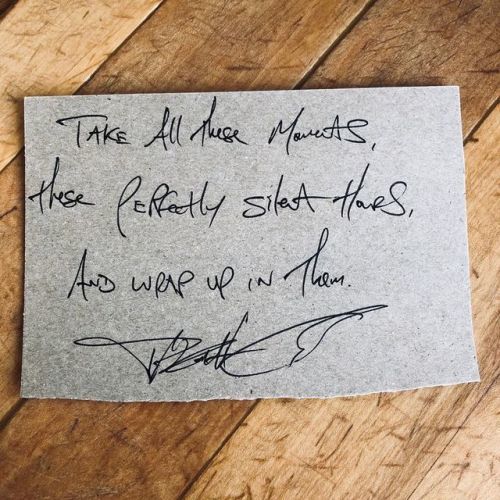 TAKE All these Moments,
these PERfectly silent HouRS,
AND WRAP UP IN them.